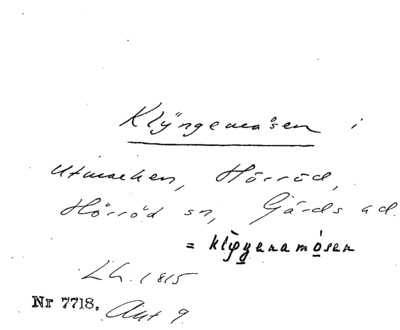 Klÿngemåsen i
Utmarken, Hörröd,
Hörröd sn, Gärds hd.
= klÿngenamósen
Lh. 1815
Nr 7718. Akt 9